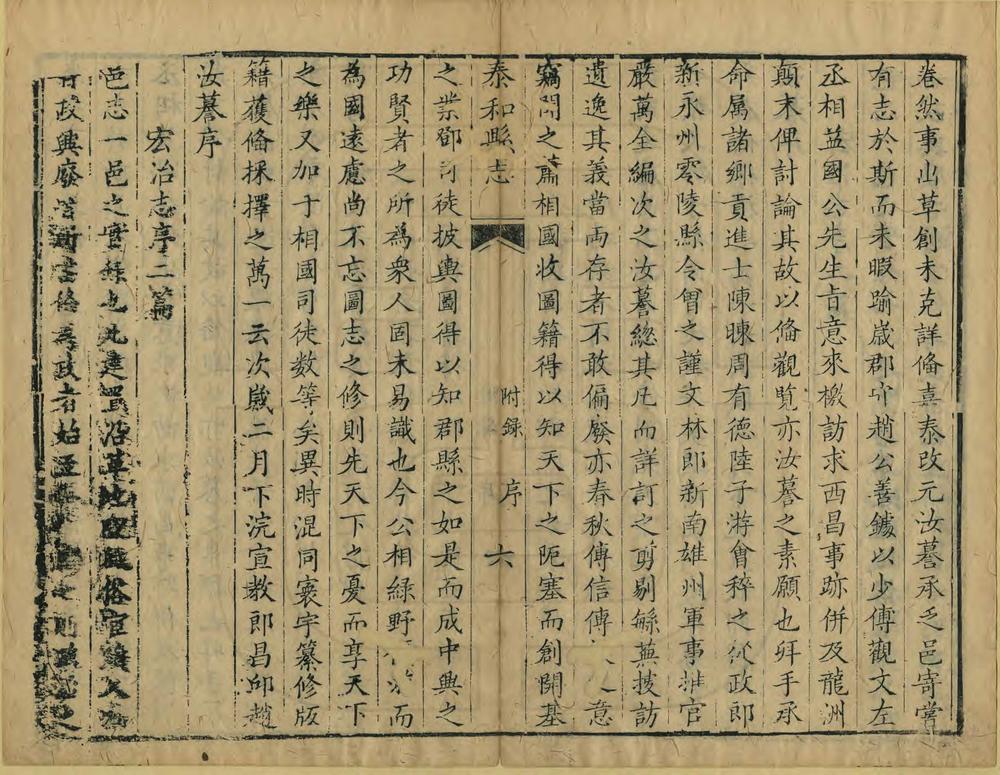 卷然事出草創未克詳偹嘉泰改元汝謩承乏邑寄嘗
有志於斯而未暇踰歲郡守趙公善鐻以少傅觀文左
丞相益國公先生台意來檄訪求西昌事跡併及龍洲
顛末俾討論其故以偹觀覽亦汝謩之素願也拜手承
命属諸鄉貢進士陳暕周有德陸子游會稡之從政郎
新永州零陵縣令曾之謹文林郎新南雄州軍事推官
嚴萬全編次之汝謩緫其凡而詳訂之剪剔繇蕪援訪
遺逸其義當両存者不敢偏廢亦春秋傳信傳意
竊問之蕭相國收圖籍得以知天下之阨塞而創開基
泰和縣志
附録
序
六
之業鄧司徒披輿圖得以知郡縣之如是而成中興之
功賢者之所為衆人固未易識也今公相緑野而
為國遠慮尚不忘圖志之修則先天下之憂而享天下
之樂又加于相國司徒数等矣異時混同寰宇纂修版
籍獲偹採擇之萬一云次歲二月下浣宣教郎昌邱趙
汝謩序
宏治志序二篇
邑志一邑之實録也凡建置沿革地俗人
政興廢俻為政者始之